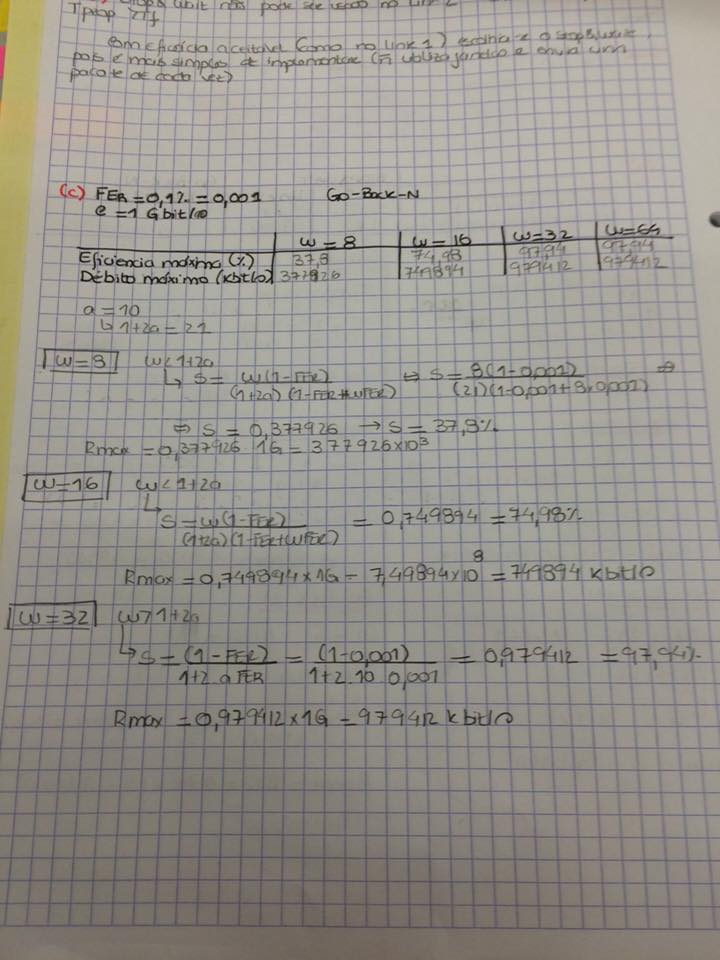 Stop & wait não pode ser usado no link 2
Tprop >> Tf
com eficiência aceitável (como no link 1) é o stop&wait,
pois é mais simples de implementar (ñ utiliza janelas e envia um
pacote de cada vez)
(c) FER = 0,1% = 0,001 Go-Back-N
C = 1 Gbit/s
w = 8 w = 16 w = 32 w = 64
Eficiência máxima (%) 37,8 74,98 97,94 97,94
Débito máximo (kbit/s) 377926 749894 979412 979412
a = 10
↳ 1+2a = 21
w = 8 w < 1+2a
↳ S = w(1-FER) / (1+2a)(1-FER+wFER) ⇔ S = 8(1-0,001) / (21)(1-0,001+8×0,001) ⇔
⇔ S = 0,377926 → S = 37,8%
Rmax = 0,377926 1G = 377926×10³
w = 16 w < 1+2a
↳ S = w(1-FER) / (1+2a)(1-FER+wFER) = 0,749894 = 74,98%
Rmax = 0,749894 × 1G = 7,49894×10⁸ = 749894 kbit/s
w = 32 w > 1+2a
↳ S = (1-FER) / 1+2.aFER = (1-0,001) / 1+2.10 0,001 = 0,979412 = 97,94%
Rmax = 0,979412 × 1G = 979412 kbit/s